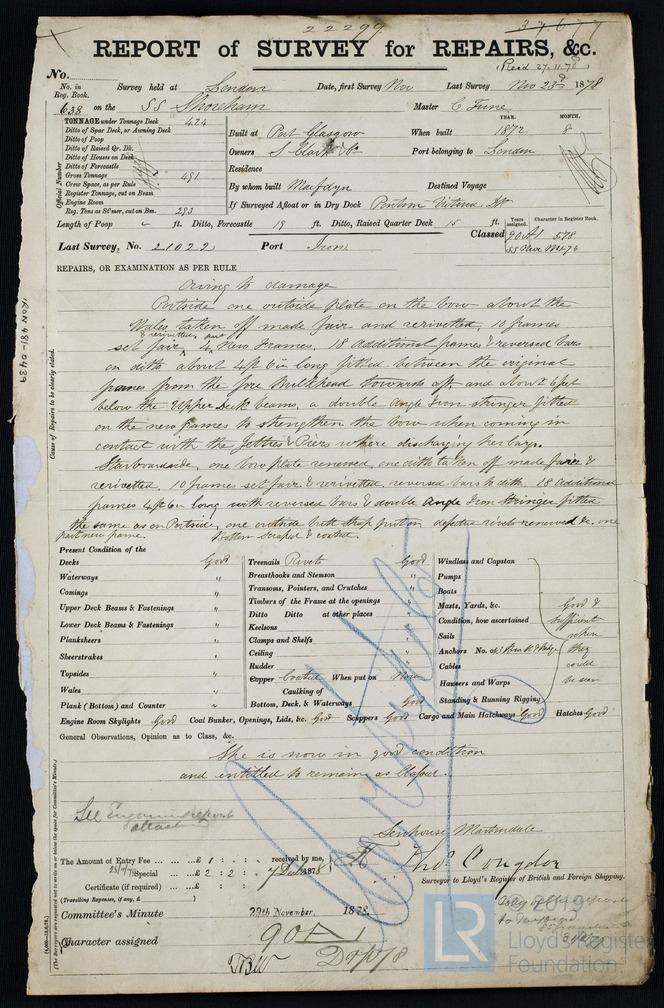 22299
37677
REPORT of SURVEY for REPAIRS, &c.
(Recd 27.11.78)
No.
No. in Reg. Book. Survey held at London Date, first Survey Nov Last Survey Nov 23rd 1878
638 on the SS Shoreham Master C Fune
TONNAGE under Tonnage Deck 424
Ditto of Spar Deck, or Awning Deck
Ditto of Poop
Ditto of Raised Qr. Dk.
Ditto of Houses on Deck
Ditto of Forecastle
Gross Tonnage 491
Crew Space, as per Rule
Register Tonnage, cut on Beam
Engine Room
Reg. Tons as St'mer, cut on Bm. 293
Official Number
Built at Port Glasgow When built YEAR. 1872 MONTH. 8
Owners S Clark & Co Port belonging to London
Residence
By whom built Macfdyn Destined Voyage
If Surveyed Afloat or in Dry Dock Victoria Dk
Length of Poop ft. Ditto, Forecastle 19 ft. Ditto, Raised Quarter Deck 15 ft.
Years assigned. Character in Register Book.
Classed 90A1 578
Last Survey, No. 21022 Port Iron
REPAIRS, OR EXAMINATION AS PER RULE
Owing to damage
Portside one outside plate on the bow about the
Wales taken off made fair and rerivetted, 10 frames
set fair & rerivetted, 4 new frames. 18 additional frames & reversed bars
on ditto about 4ft 6in long fitted between the original
frames from the fore Bulkhead towards aft and about 6feet
below the Upper Deck beams, a double Angle Iron stringer fitted
on the new frames to strengthen the bow when coming in
contact with the Jetties & Piers where discharging her cargo.
Starboardside, one bow plate renewed, one ditto taken off made fair &
rerivetted. 10 frames set fair & rerivetted, reversed bars to ditto 18 additional
frames 4ft 6in long with reversed bars & double Angle Iron Stringer fitted
the same as on Portside, one outside butt strap put on defective rivets renewed &c. one
part new frame. Bottom scraped & coated.
Cause of Repairs to be clearly stated.
IRON 481-0439
Present Condition of the
Decks Good
Waterways "
Comings "
Upper Deck Beams & Fastenings "
Lower Deck Beams & Fastenings "
Planksheers "
Sheerstrakes "
Topsides "
Wales "
Plank (Bottom) and Counter "
Treenails Rivets Good
Breasthooks and Stemson "
Transoms, Pointers, and Crutches "
Timbers of the Frame at the openings "
Ditto Ditto at other places "
Keelsons "
Clamps and Shelfs "
Ceiling "
Rudder "
Copper Coated When put on Now
Caulking of
Bottom, Deck, & Waterways Good
Windlass and Capstan
Pumps
Boats
Masts, Yards, &c.
Condition, how ascertained
Sails
Anchors No. of
Cables
Hawsers and Warps
Standing & Running Rigging
Good & sufficient when they could be seen
Engine Room Skylights Good Coal Bunker, Openings, Lids, &c. Good Scuppers Good Cargo and Main Hatchways Good Hatches Good
General Observations, Opinion as to Class, &c.
She is now in good condition
and entitled to remain as Classed.
See Engineers report
attached
Senhouse Martindale
The Amount of Entry Fee £ 1 : : received by me,
Special £ 2 : 2 : 7 Dec 1878
Certificate (if required) £ : :
(Travelling Expenses, if any, £ )
Thos Congdon
Surveyor to Lloyd's Register of British and Foreign Shipping.
Committee's Minute 29th November, 1878.
Character assigned 90A1
LR
2019
Lloyd's Register
Foundation.